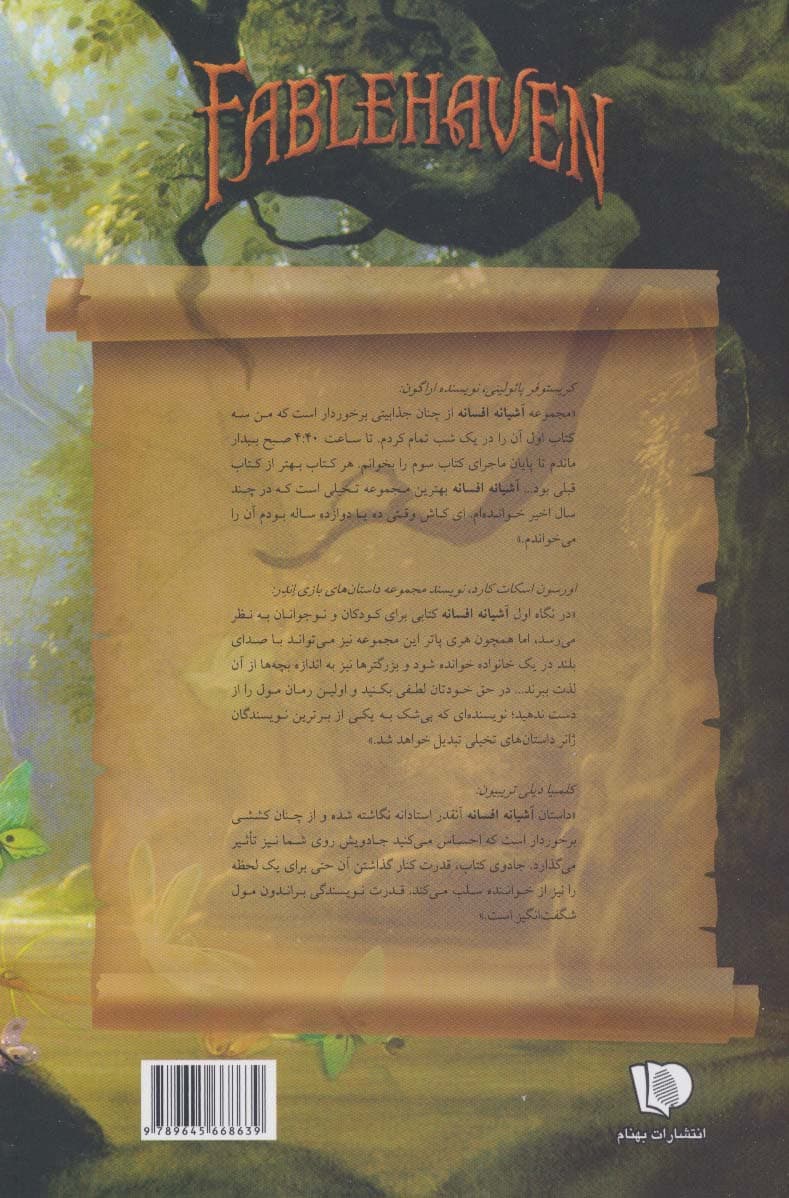 FABLEHAVEN
کریستوفر پائولینی، نویسنده اراگون:
«مجموعه آشیانه افسانه از چنان جذابیتی برخوردار است که من سه
کتاب اول آن را در یک شب تمام کردم. تا ساعت ۴:۴۰ صبح بیدار
ماندم تا پایان ماجرای کتاب سوم را بخوانم. هر کتاب بهتر از کتاب
قبلی بود... آشیانه افسانه بهترین مجموعه تخیلی است که در چند
سال اخیر خوانده‌ام. ای کاش وقتی ده یا دوازده ساله بودم آن را
می‌خواندم.»
اورسون اسکات کارد، نویسند مجموعه داستان‌های بازی اِندِر:
«در نگاه اول آشیانه افسانه کتابی برای کودکان و نوجوانان به نظر
می‌رسد، اما همچون هری پاتر این مجموعه نیز می‌تواند با صدای
بلند در یک خانواده خوانده شود و بزرگترها نیز به اندازه بچه‌ها از آن
لذت ببرند... در حق خودتان لطفی بکنید و اولین رمان مول را از
دست ندهید؛ نویسنده‌ای که بی‌شک به یکی از برترین نویسندگان
ژانر داستان‌های تخیلی تبدیل خواهد شد.»
کلمبیا دیلی تریبیون:
«داستان آشیانه افسانه آنقدر استادانه نگاشته شده و از چنان کششی
برخوردار است که احساس می‌کنید جادویش روی شما نیز تأثیر
می‌گذارد. جادوی کتاب، قدرت کنار گذاشتن آن حتی برای یک لحظه
را نیز از خواننده سلب می‌کند. قدرت نویسندگی براندون مول
شگفت‌انگیز است.»
9 789645 668639
انتشارات بهنام